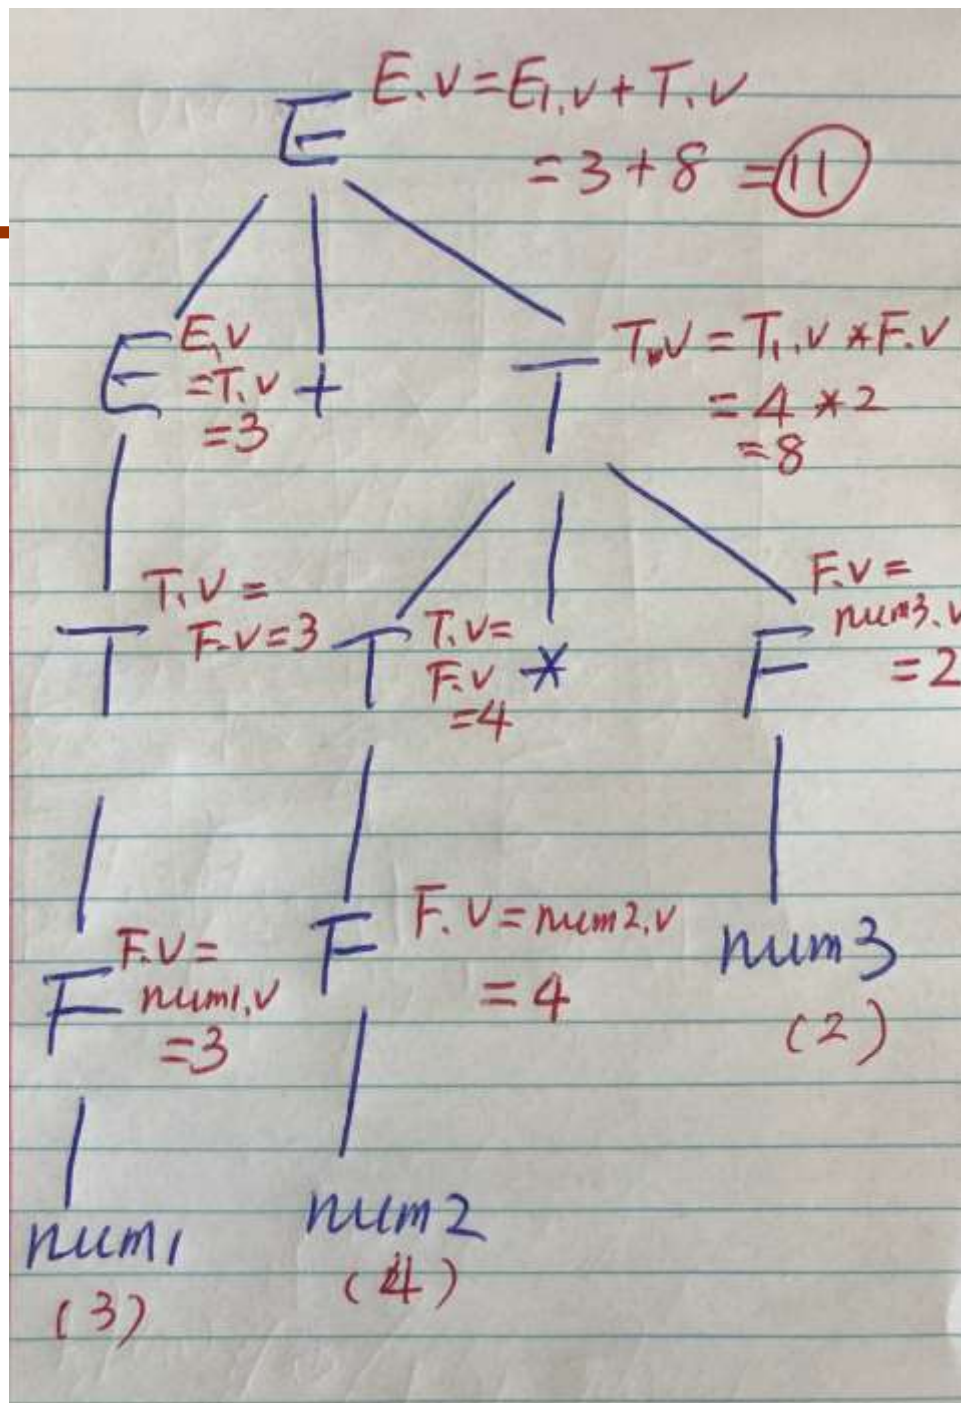 E.v = E1.v + T.v
E
= 3 + 8 = 11
E
E1.v
= T.v
= 3
+
T
T.v = T1.v * F.v
= 4 * 2
= 8
T
T.v =
F.v = 3
T
T.v =
F.v
= 4
*
F
F.v =
num3.v
= 2
F
F.v =
num1.v
= 3
F
F.v = num2.v
= 4
num3
(2)
num1
(3)
num2
(4)